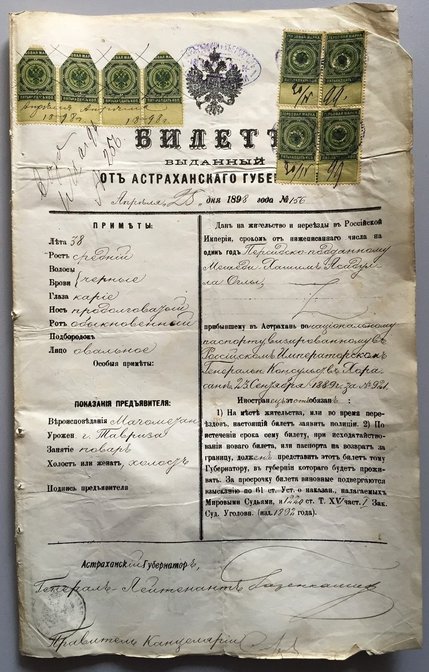 БИЛЕТЪ
ВЫДАННЫЙ
ОТЪ АСТРАХАНСКАГО ГУБЕР
Апрѣля, 28, дня 1898 года №156
ПРИМѢТЫ:
Лѣта 38
Ростъ средній
Волосы
Брови черные
Глаза каріе
Носъ продолговатый
Ротъ обыкновенный
Подбородокъ
Лицо овальное
Особыя примѣты:
ПОКАЗАНІЯ ПРЕДЪЯВИТЕЛЯ:
Вѣроисповѣданія Магометан
Урожен г. Тавриза
Занятіе поваръ
Холостъ или женатъ, холостъ
Подпись предъявителя
Данъ на жительство и переѣзды въ Россійской
Имперіи, срокомъ отъ нижеписаннаго числа на
одинъ годъ Персидско-подданному
Мешеди Хашимъ Асадул
ла Оглы
прибывшему въ Астрахань по национальному
паспорту визированному въ
Россійскомъ Императорскомъ
Генеральномъ Консульствѣ въ Хора
санѣ 25 Сентября 1889 г. за №921
Иностранецъ этотъ обязанъ:
1) На мѣстѣ жительства, или во время переѣ-
здовъ, настоящій билетъ заявить полиціи. 2) По
истеченіи срока сему билету, при исходатайство-
ваніи новаго билета, или паспорта на возвратъ за
границу, долженъ представить этотъ билетъ тому
Губернатору, въ губерніи котораго будетъ прожи-
вать. За просрочку билета виновные подвергаются
взысканію по 61 ст. Уст. о наказан., налагаемыхъ
Мировыми Судьями, и 1220 ст. Т. XV част. 1 Зак.
Суд. Уголовн. (изд. 1892 года).
Астраханскій Губернаторъ,
Генералъ-Лейтенантъ Газенкампфъ
Правитель Канцеляріи